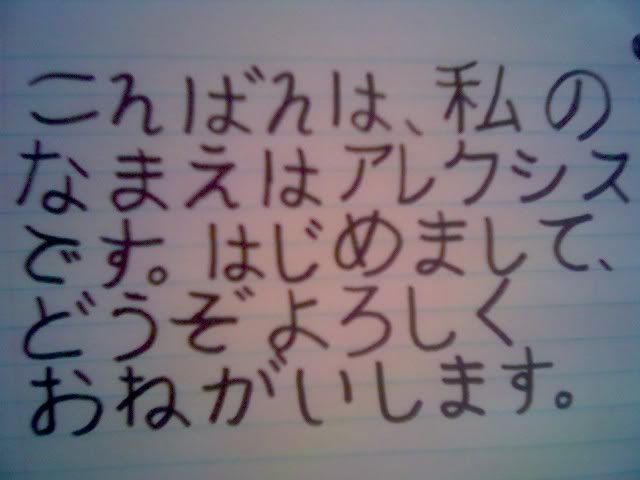 こんばんは、私の
なまえはアレクシス
です。はじめまして、
どうぞよろしく
おねがいします。